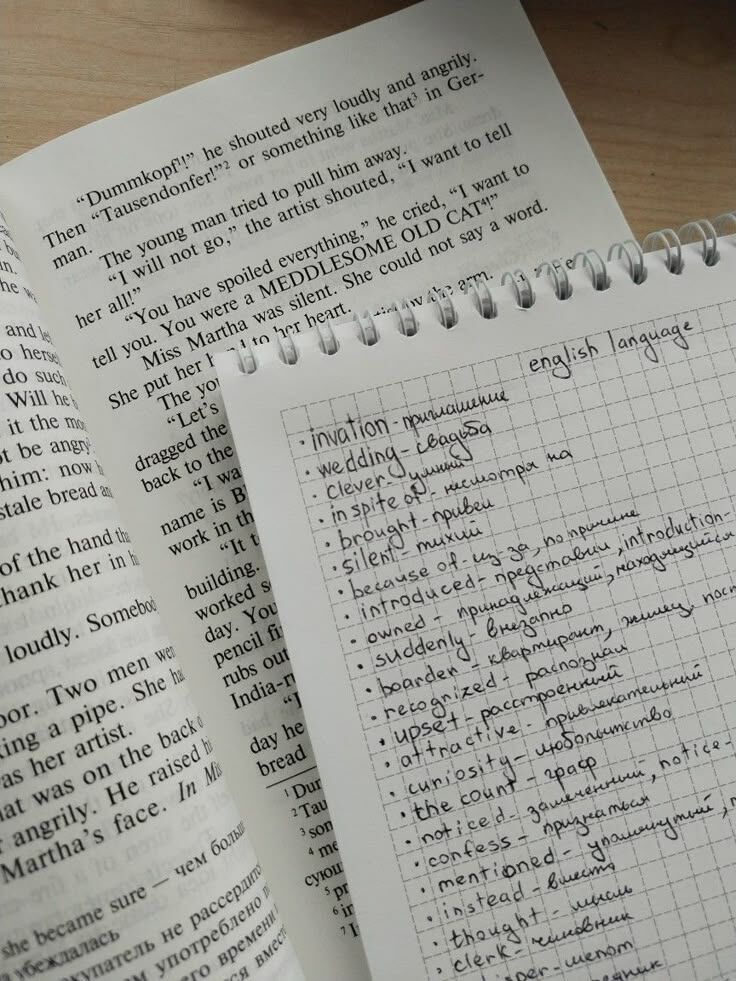 "Dummkopf¹!" he shouted very loudly and angrily.
Then "Tausendonfer!"² or something like that³ in Ger-
man.
The young man tried to pull him away.
"I will not go," the artist shouted, "I want to tell
her all!"
"You have spoiled everything," he cried, "I want to
tell you. You were a MEDDLESOME OLD CAT⁴!"
Miss Martha was silent. She could not say a word.
She put her hand to her heart.
The yo
"Let's
dragged the
back to the
"I wa
name is B
work in th
"It t
building.
worked s
day. You
pencil fi
rubs out
India-r
day he
bread
¹ Dur
² Tau
³ son
⁴ me
сующ
⁵ pr
⁶ in
and le
o herse
do such
Will he
it the mo
ot be angry
him: now h
stale bread an
of the hand th
thank her in h
loudly. Somebo
oor. Two men wer
king a pipe. She ha
as her artist.
hat was on the back o
r angrily. He raised hi
Martha's face. In Mis
she became sure — чем больш
а убеждалась
окупатель не рассердитс
м употреблено
его времени
ся вмест
english language
· invation - приглашение
· wedding - свадьба
· clever - умный
· in spite of - несмотря на
· brought - привел
· silent - тихий
· because of - из-за, по причине
· introduced - представил, introduction-
· owned - принадлежащий, находящийся
· suddenly - внезапно
· boarder - квартирант, жилец, пост
· recognized - распознал
· upset - расстроенный
· attractive - привлекательный
· curiosity - любопытство
· the count - граф
· noticed - замеченный, notice-
· confess - признаться
· mentioned - упомянутый,
· instead - вместо
· thought - мысль
· clerk - чиновник
isper - шепот